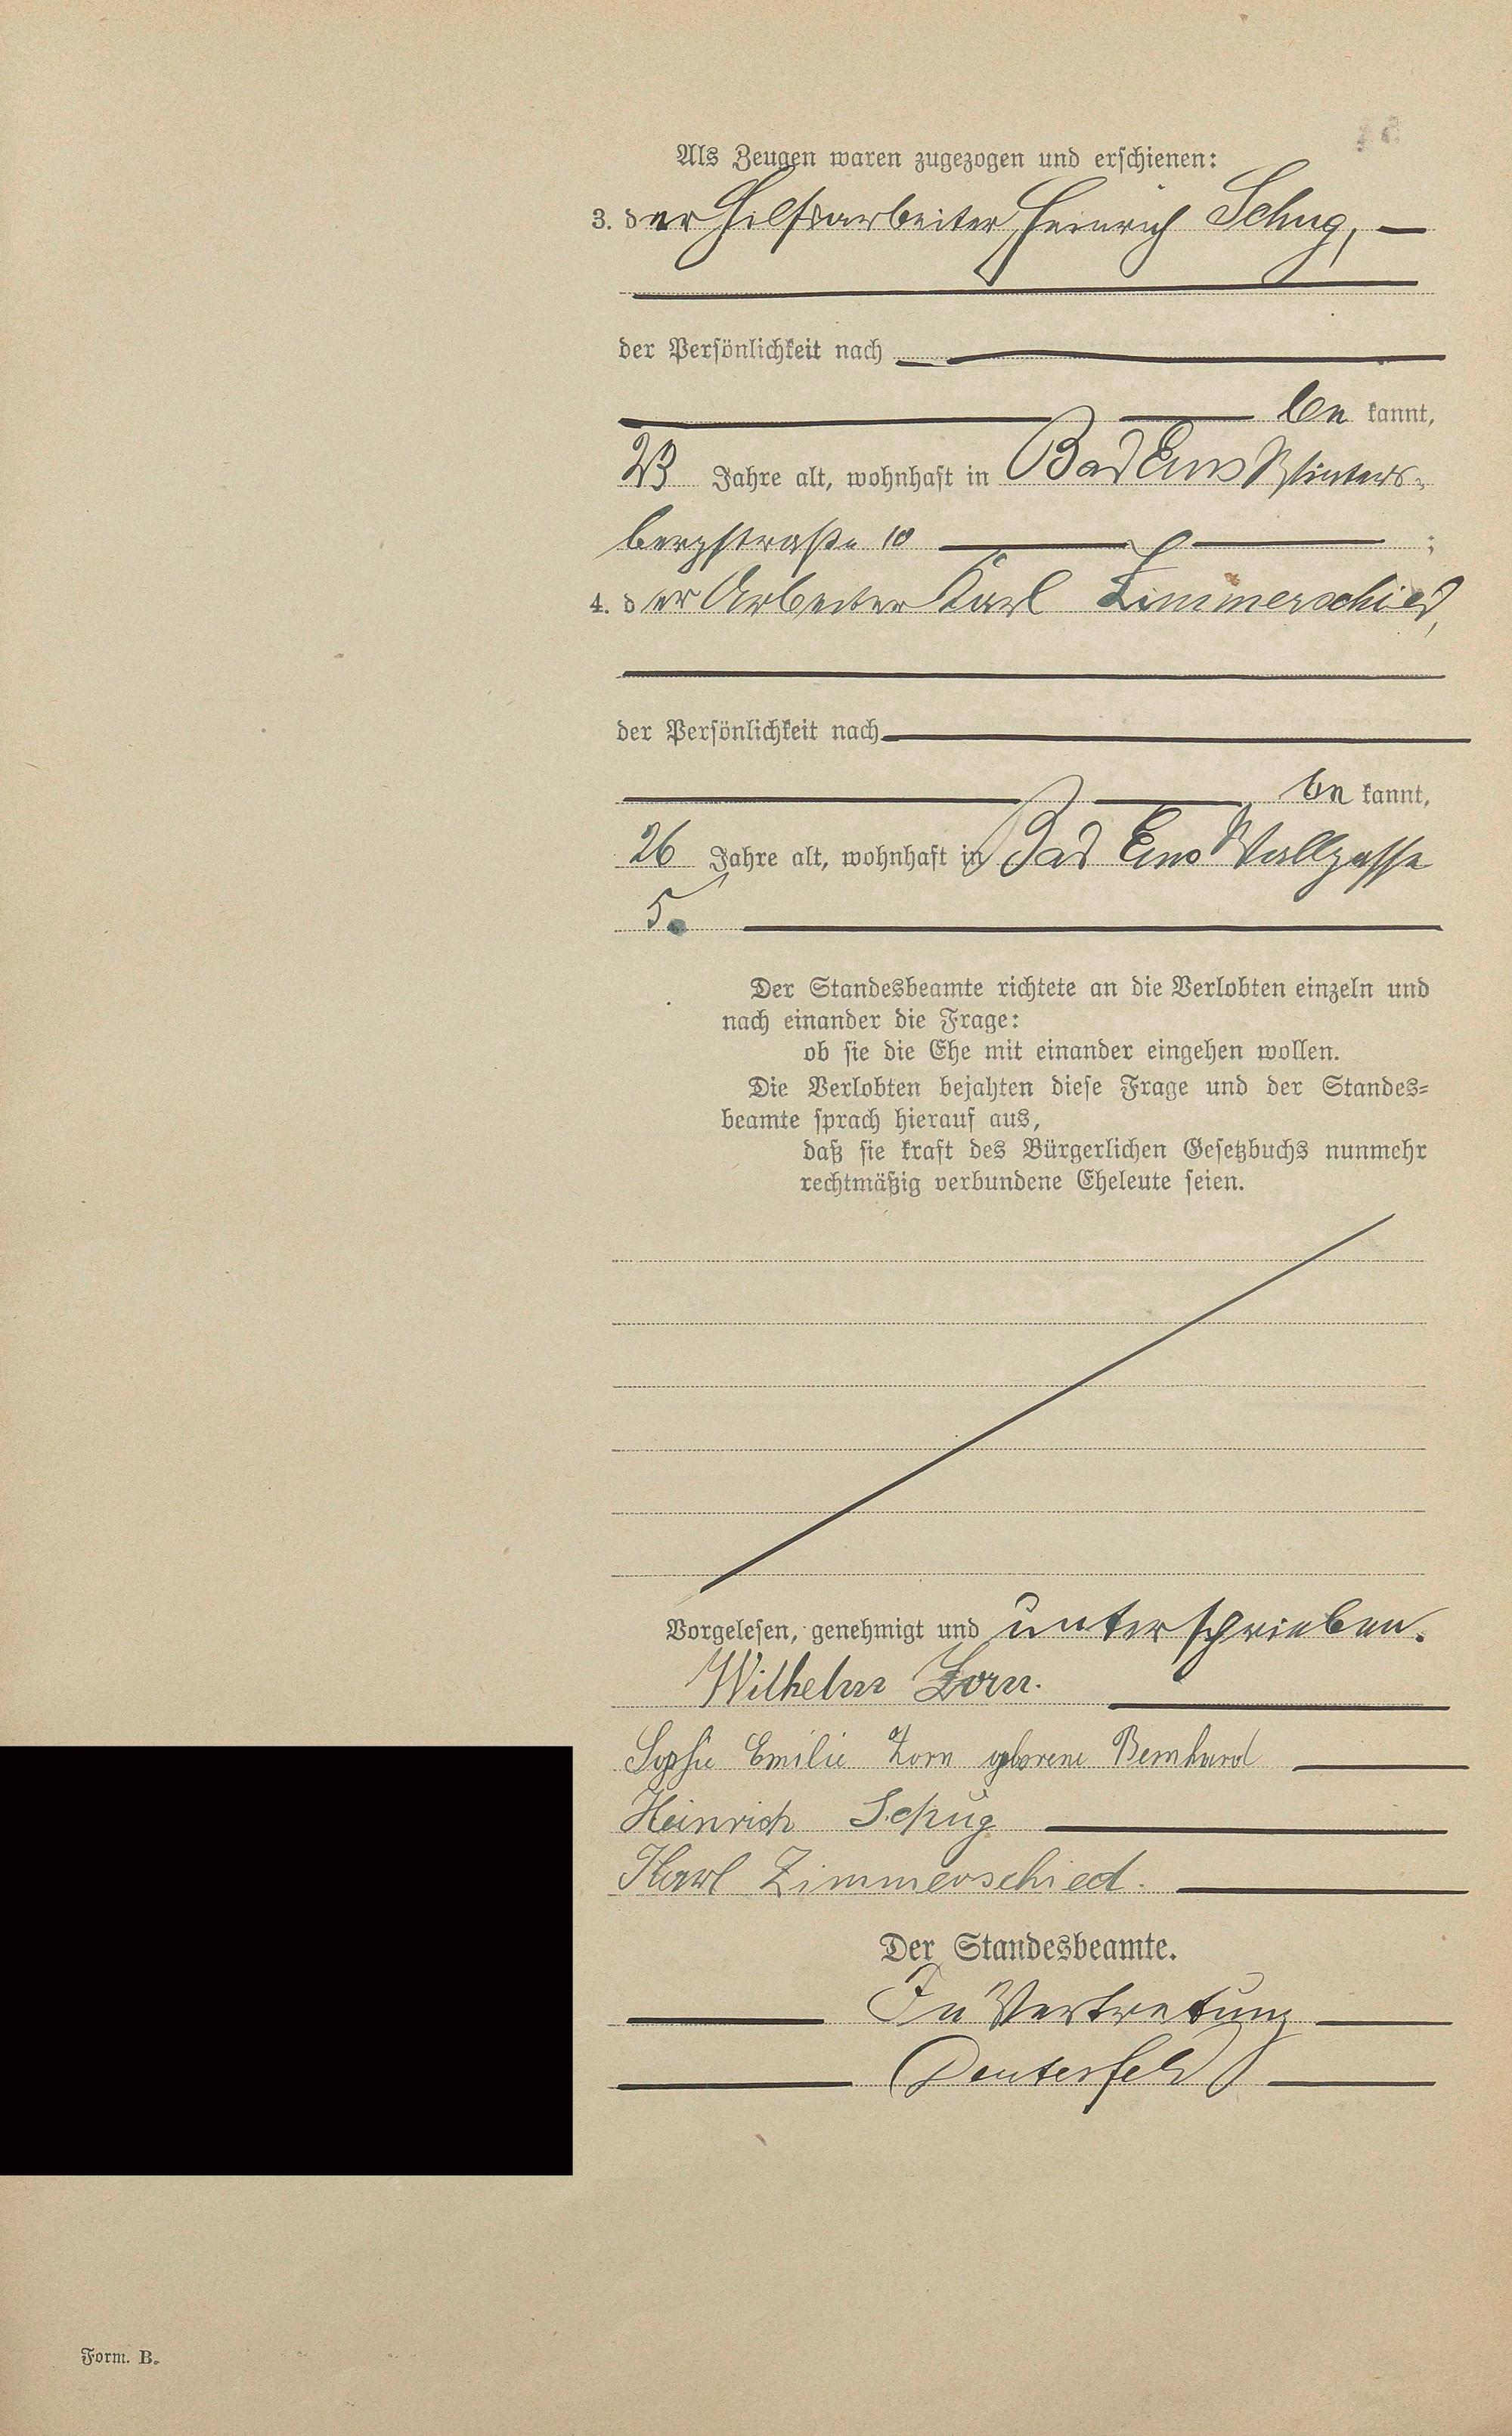 Als Zeugen waren zugezogen und erschienen:
3. der Hilfsarbeiter Heinrich Schug,
der Persönlichkeit nach
be kannt,
23 Jahre alt, wohnhaft in Bad Ems Winters-
bergstraße 10 ;
4. der Arbeiter Karl Zimmerschied,
der Persönlichkeit nach
be kannt,
26 Jahre alt, wohnhaft in Bad Ems Wallgasse
5.
Der Standesbeamte richtete an die Verlobten einzeln und
nach einander die Frage:
ob sie die Ehe mit einander eingehen wollen.
Die Verlobten bejahten diese Frage und der Standes-
beamte sprach hierauf aus,
daß sie kraft des Bürgerlichen Gesetzbuchs nunmehr
rechtmäßig verbundene Eheleute seien.
Vorgelesen, genehmigt und unterschrieben.
Wilhelm Zorn.
Sophie Emilie Zorn geborene Bernhard
Heinrich Schug
Karl Zimmerschied.
Der Standesbeamte.
In Vertretung
Form. B.